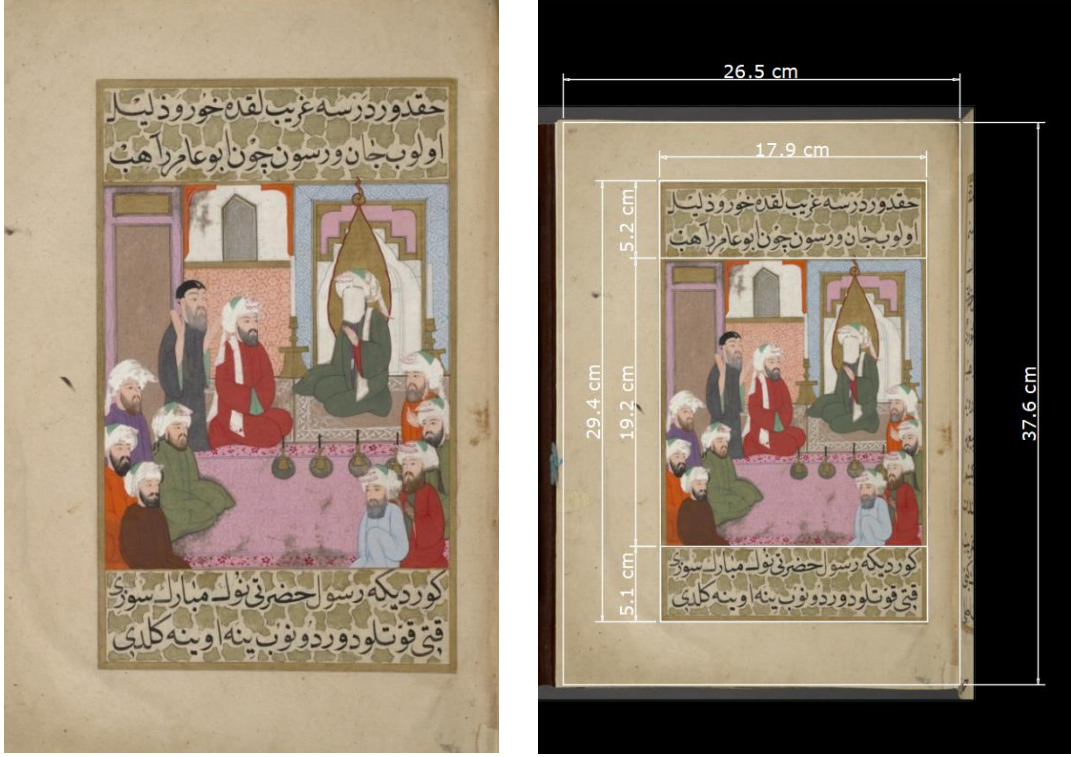 حقدور درسه غریب لقده خور و ذلیل
اولوب جان ورسون چون ابو عامر راهب
كوردیكه رسول حضرتی نوك مبارك سوزی
قتی قوتلودور دونوب ینه اوینه كلدی
26.5 cm
17.9 cm
5.2 cm
حقدور درسه غریب لقده خور و ذلیل
اولوب جان ورسون چون ابو عامر راهب
29.4 cm
19.2 cm
37.6 cm
5.1 cm
كوردیكه رسول حضرتی نوك مبارك سوزی
قتی قوتلودور دونوب ینه اوینه كلدی